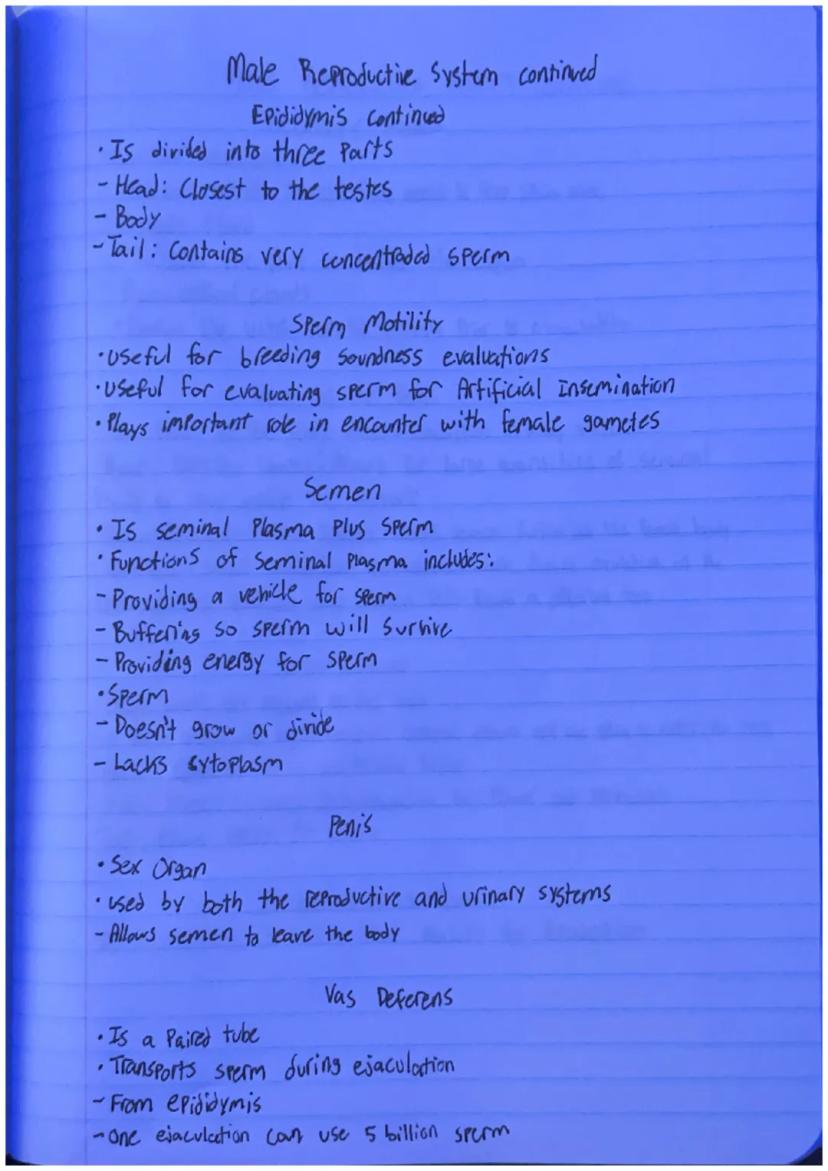 Male Reproductive System continued
Epididymis continued
• Is divided into three Parts
- Head: Closest to the testes
- Body
- Tail: Contains very concentraded sperm
Sperm Motility
• useful for breeding soundness evaluations
• useful for evaluating sperm for Artificial Insemination
• Plays important role in encounter with female gametes
Semen
• Is seminal Plasma Plus sperm
• Functions of seminal Plasma includes:
- Providing a vehicle for sperm
- Buffering so sperm will survive
- Providing energy for sperm
• Sperm
- Doesn't grow or divide
- Lacks cytoplasm
Penis
• Sex Organ
• used by both the reproductive and urinary systems
- Allows semen to leave the body
Vas Deferens
• Is a Paired tube
• Transports sperm during ejaculation
- From epididymis
- One ejaculation can use 5 billion sperm